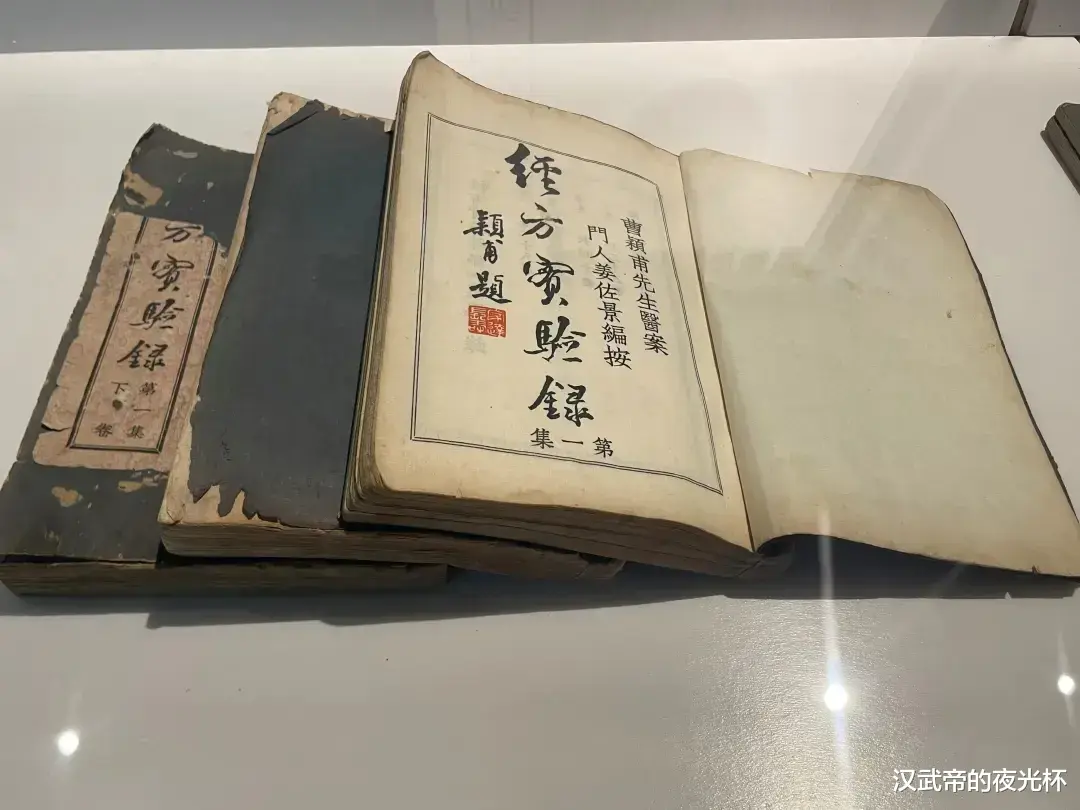 曹穎甫先生醫案
門人姜佐景編按
經方實驗録
第一集
穎甫題
方實驗録
第一集
下卷
汉武帝的夜光杯